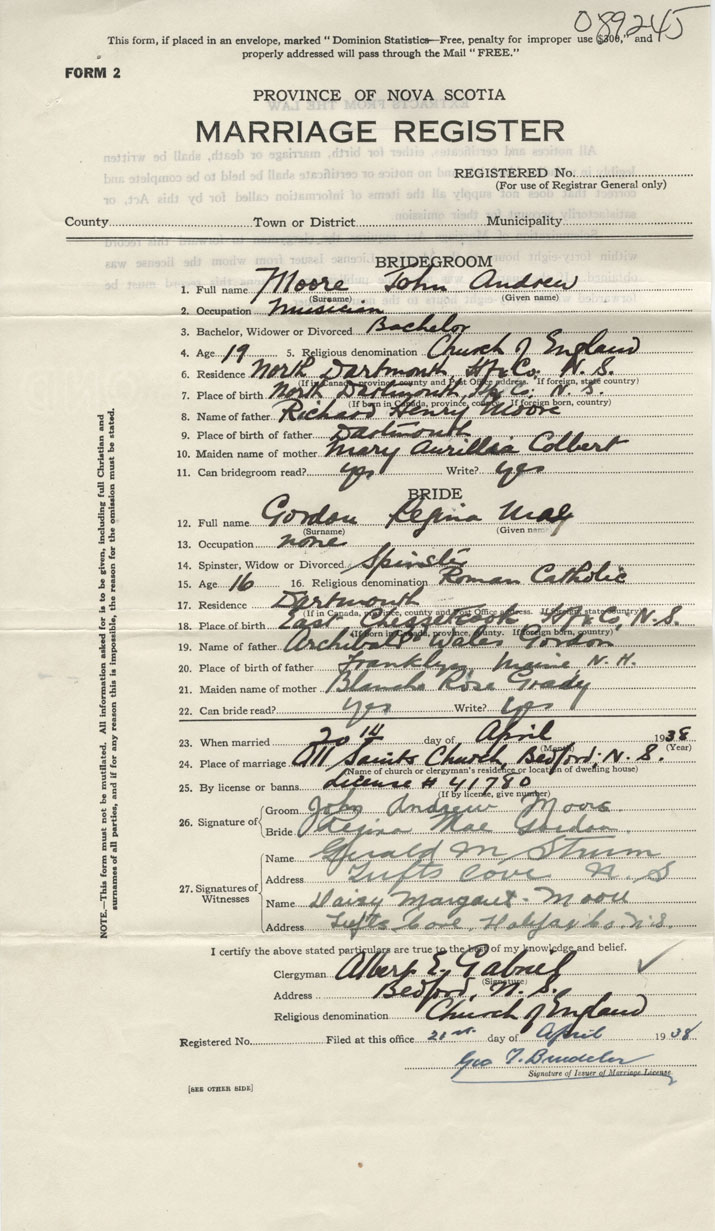 089245
This form, if placed in an envelope, marked "Dominion Statistics—Free, penalty for improper use $300," and
properly addressed will pass through the Mail "FREE."
FORM 2
PROVINCE OF NOVA SCOTIA
MARRIAGE REGISTER
REGISTERED No.
(For use of Registrar General only)
County Town or District Municipality
BRIDEGROOM
1. Full name Moore John Andrew
(Surname) (Given name)
2. Occupation Musician
3. Bachelor, Widower or Divorced Bachelor
4. Age 19 5. Religious denomination Church of England
6. Residence North Dartmouth, Hfx Co. N. S.
(If in Canada, province, county and Post Office address. If foreign, state country)
7. Place of birth North Dartmouth, Hfx Co. N. S.
(If born in Canada, province, county. If foreign born, country)
8. Name of father Richard Henry Moore
9. Place of birth of father Dartmouth
10. Maiden name of mother Mary Aurillia Colbert
11. Can bridegroom read? yes Write? yes
BRIDE
12. Full name Gordon Regina Mae
(Surname) (Given name)
13. Occupation none
14. Spinster, Widow or Divorced Spinster
15. Age 16 16. Religious denomination Roman Catholic
17. Residence Dartmouth
(If in Canada, province, county and Post Office address. If foreign state country)
18. Place of birth East Chezzetcook Hfx Co, N. S.
(If born in Canada, province, county. If foreign born, country)
19. Name of father Archibald Wales Gordon
20. Place of birth of father Franklyn, Maine N. H.
21. Maiden name of mother Blanche Rose Grady
22. Can bride read? yes Write? yes
23. When married 20th day of April 1938
(Month) (Year)
24. Place of marriage All Saints Church, Bedford, N. S.
(Name of church or clergyman's residence or location of dwelling house)
25. By license or banns License # 41780
(If by license, give number)
26. Signature of Groom John Andrew Moore
Bride Regina Mae Gordon
27. Signatures of Witnesses
Name Gerald M. Strum
Address Tufts Cove N. S
Name Daisy Margaret Moore
Address Tufts Cove, Halifax Co. N.S.
I certify the above stated particulars are true to the best of my knowledge and belief.
Clergyman Albert E. Gabriel
(Signature)
Address Bedford, N. S.
Religious denomination Church of England
Registered No. Filed at this office 21st day of April 1938
Geo
Signature of Issuer of Marriage License
[SEE OTHER SIDE]
NOTE.—This form must not be mutilated. All information asked for is to be given, including full Christian and
surnames of all parties, and if for any reason this is impossible, the reason for the omission must be stated.